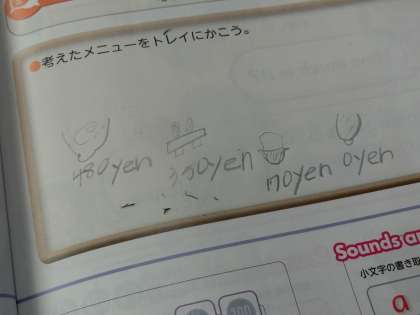 ●考えたメニューをトレイにかこう。
480yen
170yen
0yen
Sounds a
小文字の書き取
a
100